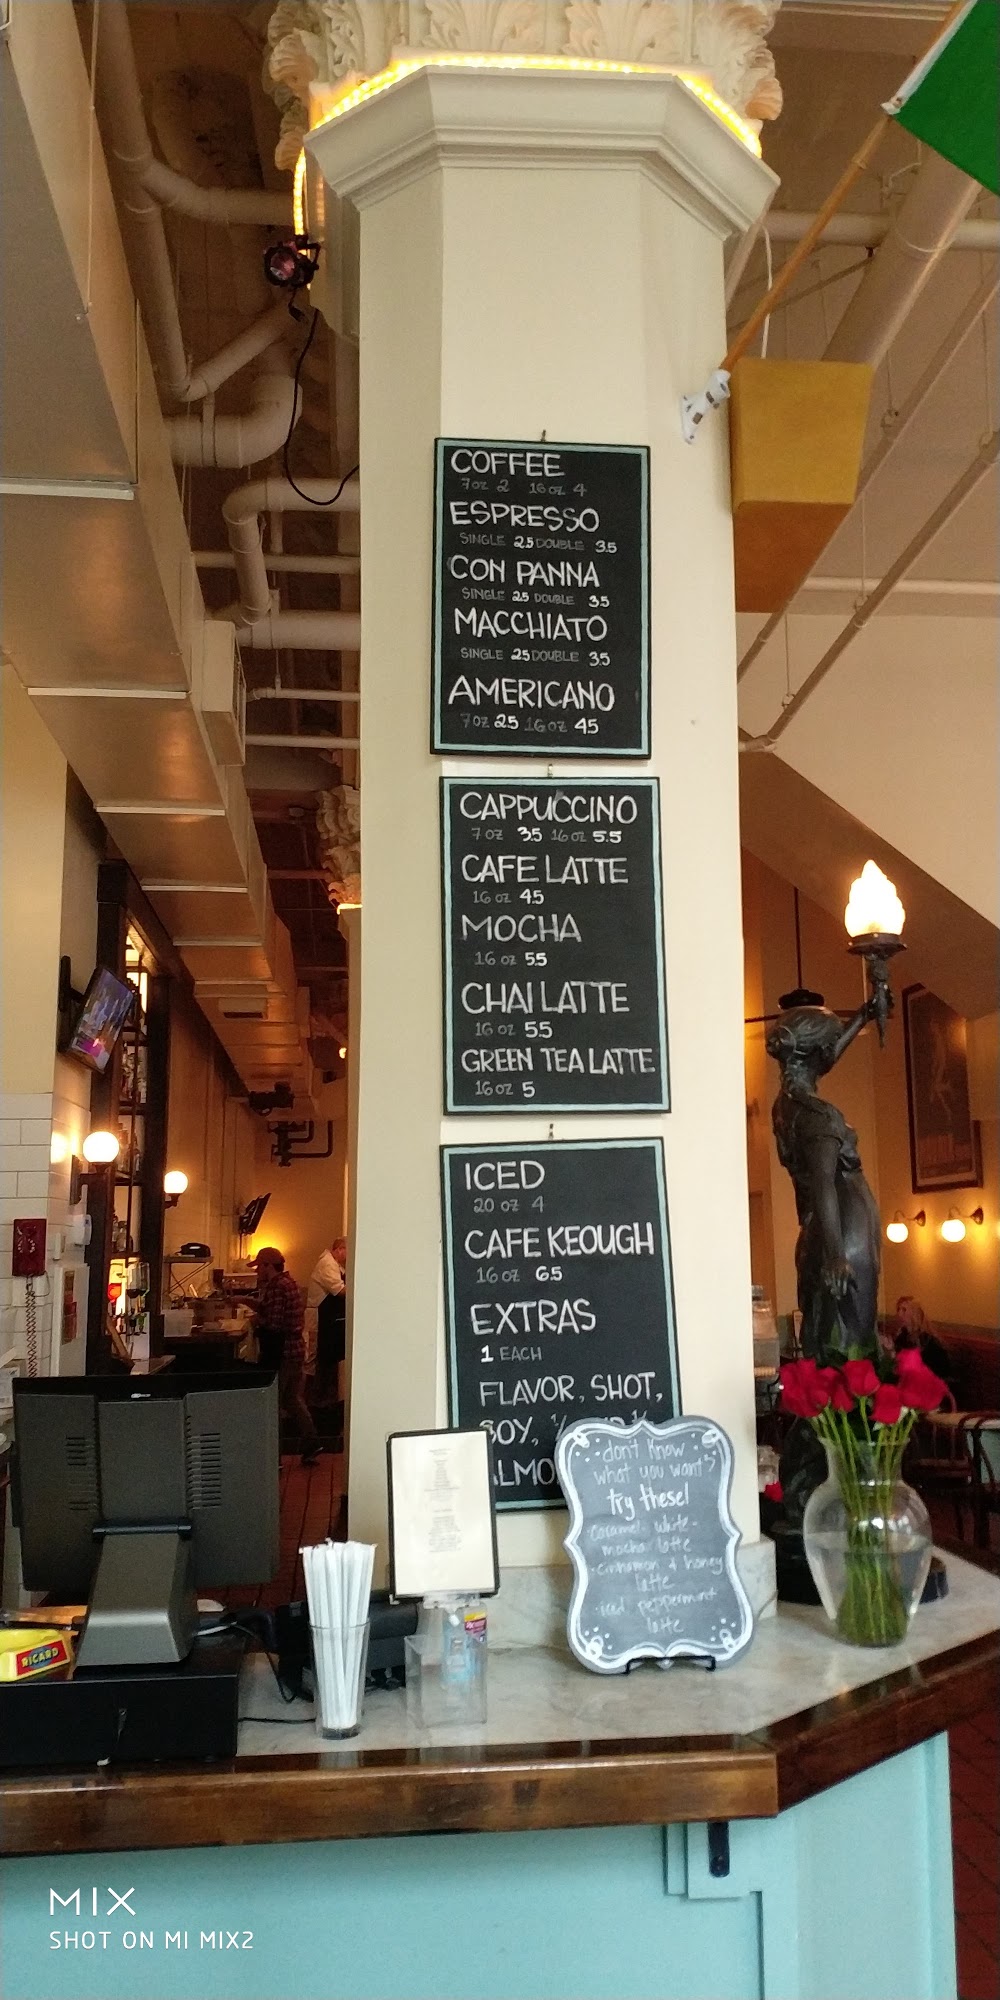 COFFEE
7oz 2 16oz 4
ESPRESSO
SINGLE 25 DOUBLE 35
CON PANNA
SINGLE 25 DOUBLE 35
MACCHIATO
SINGLE 25 DOUBLE 35
AMERICANO
7oz 25 16oz 45
CAPPUCCINO
7 oz 35 16 oz 5.5
CAFE LATTE
16 oz 45
MOCHA
16 oz 55
CHAI LATTE
16 oz 55
GREEN TEA LATTE
16 oz 5
ICED
20 oz 4
CAFE KEOUGH
16 oz 65
EXTRAS
1 EACH
FLAVOR, SHOT,
SOY,
ALMO
don't know
what you want?
try these!
·caramel white-
mocha latte
·cinnamon & honey
latte
·iced peppermint
latte
RICARD
MIX
SHOT ON MI MIX2